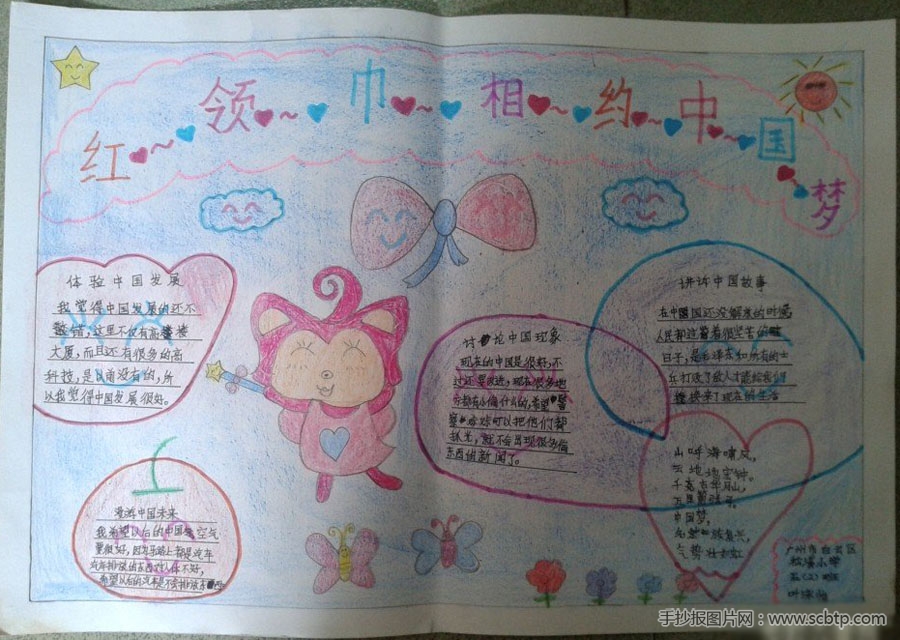 红领巾相约中国梦
体验中国发展
我觉得中国发展的还不
错,这里不仅有高楼
大厦,而且还有很多的高
科技,是以前没有的,所
以我觉得中国发展很好。
讨论中国现象
现在的中国是很好,不
过还要改进,现在很多地
方都有小偷什么的,希望警
察叔叔可以把他们都
抓光,就不会出现很多偷
东西的新闻了。
讲诉中国故事
在中国还没解放的时候
人民都过着很辛苦的
日子,是毛泽东和所有的士
兵打败了敌人才能给我们
换来了现在的生活
漫游中国未来
我希望以后的中国空气
质很好,因为马路上都是汽车
汽车排放的东西对人体不好,
希望以后的汽车是不会排放东西
山呼海啸风,
云地
千
万里
中国梦,
族复兴,
气势壮
广州市白云区
小学
五(2)班
叶
手抄报图片网·www.scbtp.com